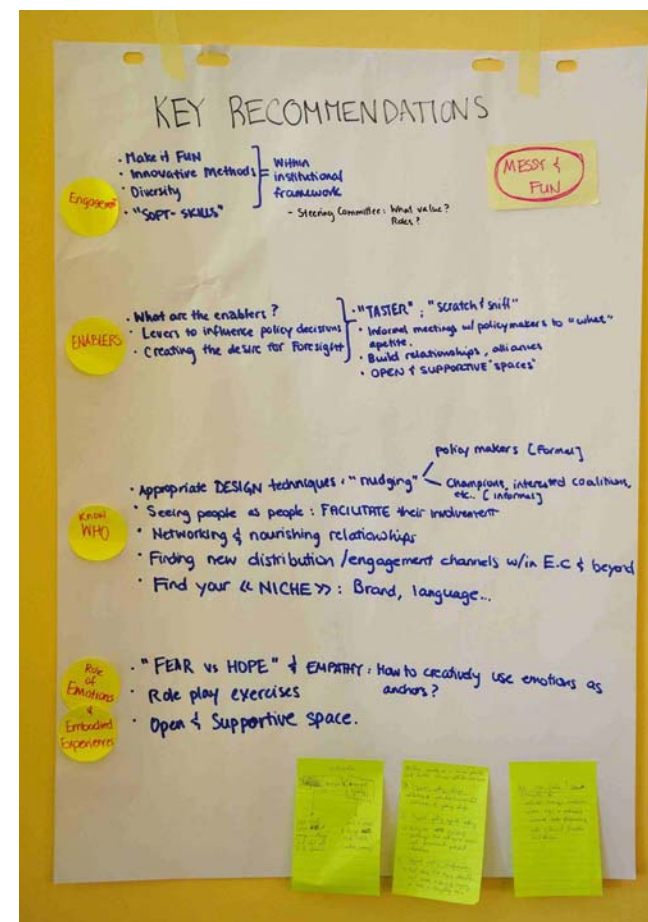 KEY RECOMMENDATIONS
MESSY &
FUN
Engagement
• Make it FUN
• Innovative Methods
• Diversity
• "SOFT-SKILLS"
= Within
institutional
framework
- Steering Committee: What value?
Roles?
ENABLERS
• What are the enablers?
• Levers to influence policy decisions
• Creating the desire for Foresight
• "TASTER"; "scratch & sniff"
• Informal meetings w/ policymakers to "whet"
apetite.
• Build relationships, alliances
• OPEN & SUPPORTIVE "spaces"
KNOW
WHO
• Appropriate DESIGN techniques, "nudging"
policy makers [Formal]
Champions, interested coalitions,
etc.. [informal]
• Seeing people as people: FACILITATE their involvement
• Networking & nourishing relationships
• Finding new distribution/engagement channels w/in E.C & beyond
• Find your « NICHE »: Brand, language...
Role
of
Emotions
&
Embodied
Experiences
• "FEAR vs HOPE" & EMPATHY: How to creatively use emotions as
anchors?
• Role play exercises
• Open & Supportive space.